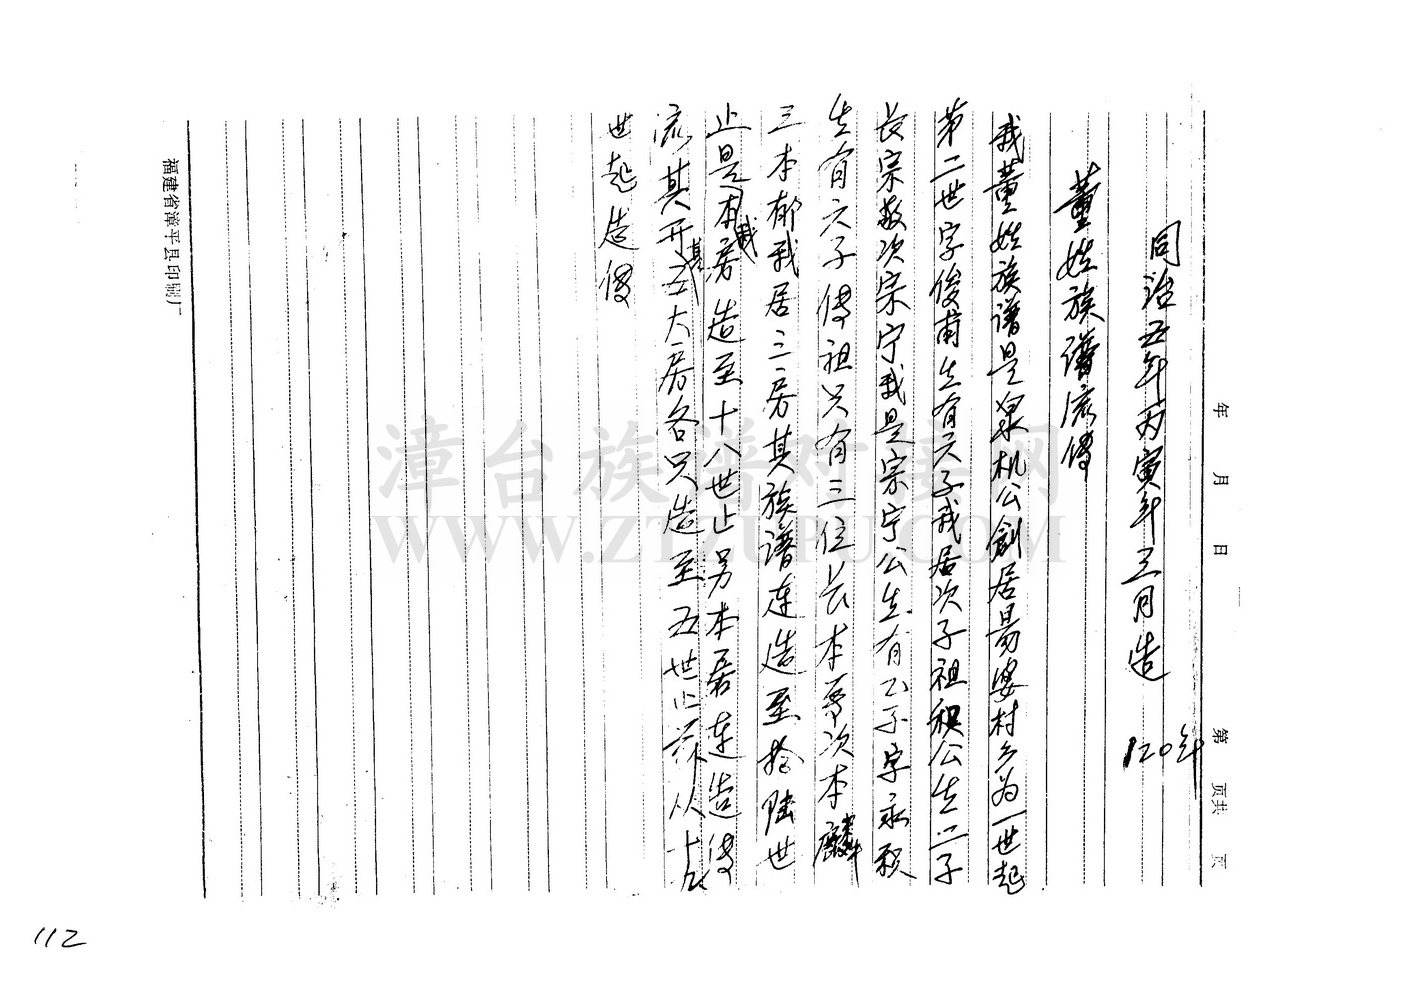 年 月 日 第 页共 页
同治五年丙寅年三月造 120年
董姓族谱流传
我董姓族谱是泉机公創居易婆村乡为一世起
第二世字俊甫生有六子我居次子祖积公生二子
長宗敖次宗宁我是宗宁公生有乙子字永毅
生有六子傳祖只有三位长本寧次本麟
三本郁我居三房其族谱连造至拾陆世
止是我本房造至十八世止另本居连造傳
流其开基五大房各只造至五世止兹从十九
世起造傳
福建省漳平县印刷厂
漳台族谱对接网
WWW.ZTZUPU.COM
112